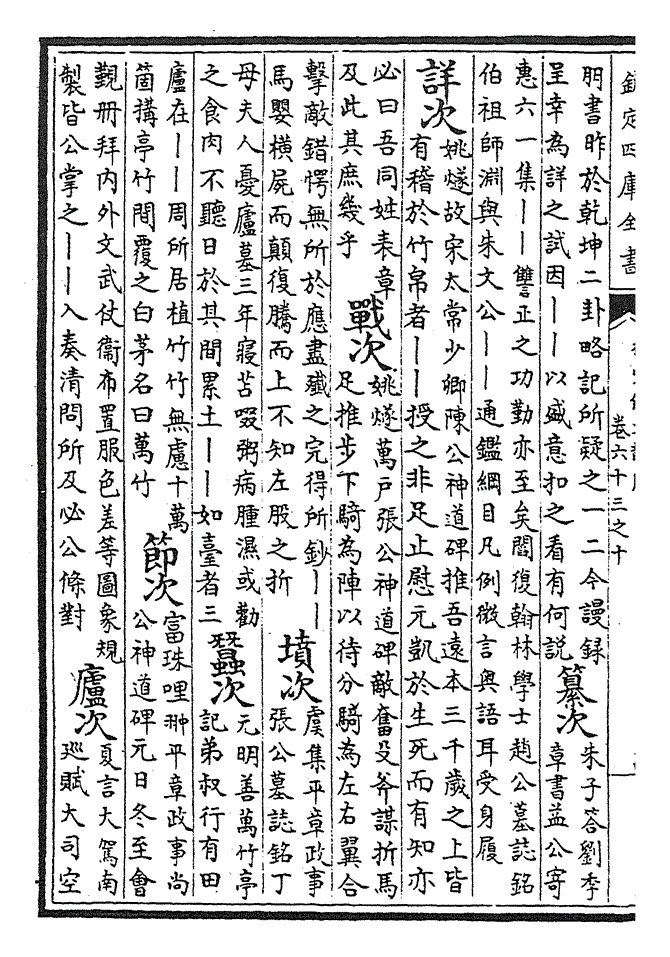 欽定四庫全書
卷六十三之十
朋書昨於乾坤二卦略記所疑之一二今謾録
呈幸為詳之試因——以盛意扣之看有何説
纂次
朱子答劉季
章書益公寄
惠六一集——讐正之功勤亦至矣閻復翰林學士趙公墓誌銘
伯祖師淵與朱文公——通鑑綱目凡例微言奥語耳受身履
詳次
姚燧故宋太常少卿陳公神道碑推吾遠本三千歲之上皆
有稽於竹帛者——授之非足止慰元凱於生死而有知亦
必曰吾同姓表章
及此其庶幾乎
戰次
姚燧萬戸張公神道碑敵奮殳斧謀折馬
足推步下騎為陣以待分騎為左右翼合
擊敵錯愕無所於應盡殱之完得所鈔——
馬嬰横屍而顛復騰而上不知左股之折
墳次
虞集平章政事
張公墓誌銘丁
母夫人憂廬墓三年寢苫啜粥病腫濕或勸
之食肉不聽日於其間累土——如臺者三
蠶次
元明善萬竹亭
記弟叔行有田
廬在——周所居植竹竹無慮十萬
箇搆亭竹間覆之白茅名曰萬竹
節次
富珠哩翀平章政事尚
公神道碑元日冬至會
覲册拜内外文武仗衛布置服色差等圖象規
製皆公掌之——入奏清問所及必公條對
廬次
夏言大駕南
巡賦大司空